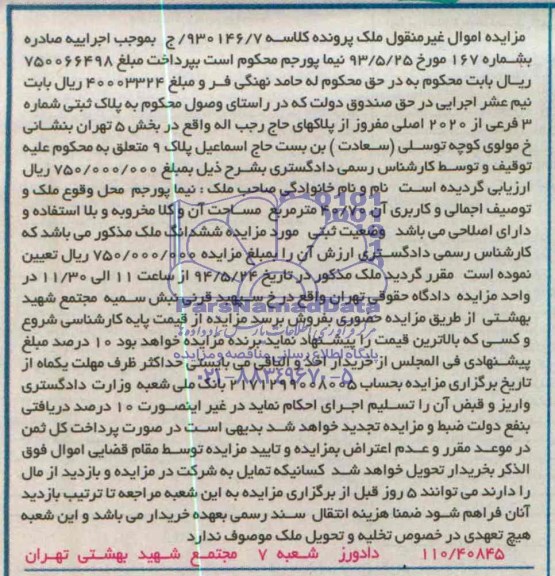 مزایده اموال غیرمنقول ملک پرونده کلاسه ۹۳۰۱۴۶/۷/ ج بموجب اجراییه صادره
بشماره ۱۶۷ مورخ ۹۳/۵/۲۵ نیما پورجم محکوم است بپرداخت مبلغ ۷۵۰۰۶۶۴۹۸
ریال بابت محکوم به در حق محکوم له حامد نهنگی فر و مبلغ ۴۰۰۰۳۳۲۴ ریال بابت
نیم عشر اجرایی در حق صندوق دولت که در راستای وصول محکوم به پلاک ثبتی شماره
۳ فرعی از ۲۰۲۰ اصلی مفروز از پلاکهای حاج رجب اله واقع در بخش ۵ تهران بنشانی
خ مولوی کوچه توسلی (سعادت ) بن بست حاج اسماعیل پلاک ۹ متعلق به محکوم علیه
توقیف و توسط کارشناس رسمی دادگستری بشرح ذیل بمبلغ ۷۵۰/۰۰۰/۰۰۰ ریال
ارزیابی گردیده است نام و نام خانوادگی صاحب ملک : نیما پورجم محل وقوع ملک و
توصیف اجمالی و کاربری آن ۴۰/۷۰ مترمربع مساحت آن و کلا مخروبه و بلا استفاده و
دارای اصلاحی می باشد وضعیت ثبتی مورد مزایده ششدانگ ملک مذکور می باشد که
کارشناس رسمی دادگستری ارزش آن را بمبلغ مزایده ۷۵۰/۰۰۰/۰۰۰ ریال تعیین
نموده است مقرر گردید ملک مذکور در تاریخ ۹۴/۵/۲۴ از ساعت ۱۱ الی ۱۱/۳۰ در
واحد مزایده دادگاه حقوقی تهران واقع در خ سپهبد قرنی نبش سمیه مجتمع شهید
بهشتی از طریق مزایده حضوری بفروش برسد مزایده از قیمت پایه کارشناسی شروع
و کسی که بالاترین قیمت را پیشنهاد نماید برنده مزایده خواهد بود ۱۰ درصد مبلغ
پیشنهادی فی المجلس از خریدار اخذ و الباقی می بایستی حداکثر ظرف مهلت یکماه از
تاریخ برگزاری مزایده بحساب ۲۱۷۱۲۹۹۰۰۸۰۰۵ بانک ملی شعبه وزارت دادگستری
واریز و قبض آن را تسلیم اجرای احکام نماید در غیر اینصورت ۱۰ درصد دریافتی
بنفع دولت ضبط و مزایده تجدید خواهد شد بدیهی است در صورت پرداخت کل ثمن
در موعد مقرر و عدم اعتراض بمزایده و تایید مزایده توسط مقام قضایی اموال فوق
الذکر بخریدار تحویل خواهد شد کسانیکه تمایل به شرکت در مزایده و بازدید از مال
را دارند می توانند ۵ روز قبل از برگزاری مزایده به این شعبه مراجعه تا ترتیب بازدید
آنان فراهم شود ضمنا هزینه انتقال سند رسمی بعهده خریدار می باشد و این شعبه
هیچ تعهدی در خصوص تخلیه و تحویل ملک موصوف ندارد
۱۱۰/۴۰۸۴۵ دادورز شعبه ۷ مجتمع شهید بهشتی تهران
ParsNamadData
پایگاه اطلاع رسانی مناقصه و مزایده
۰۲۱-۸۸۳۴۹۶۷۰-۵